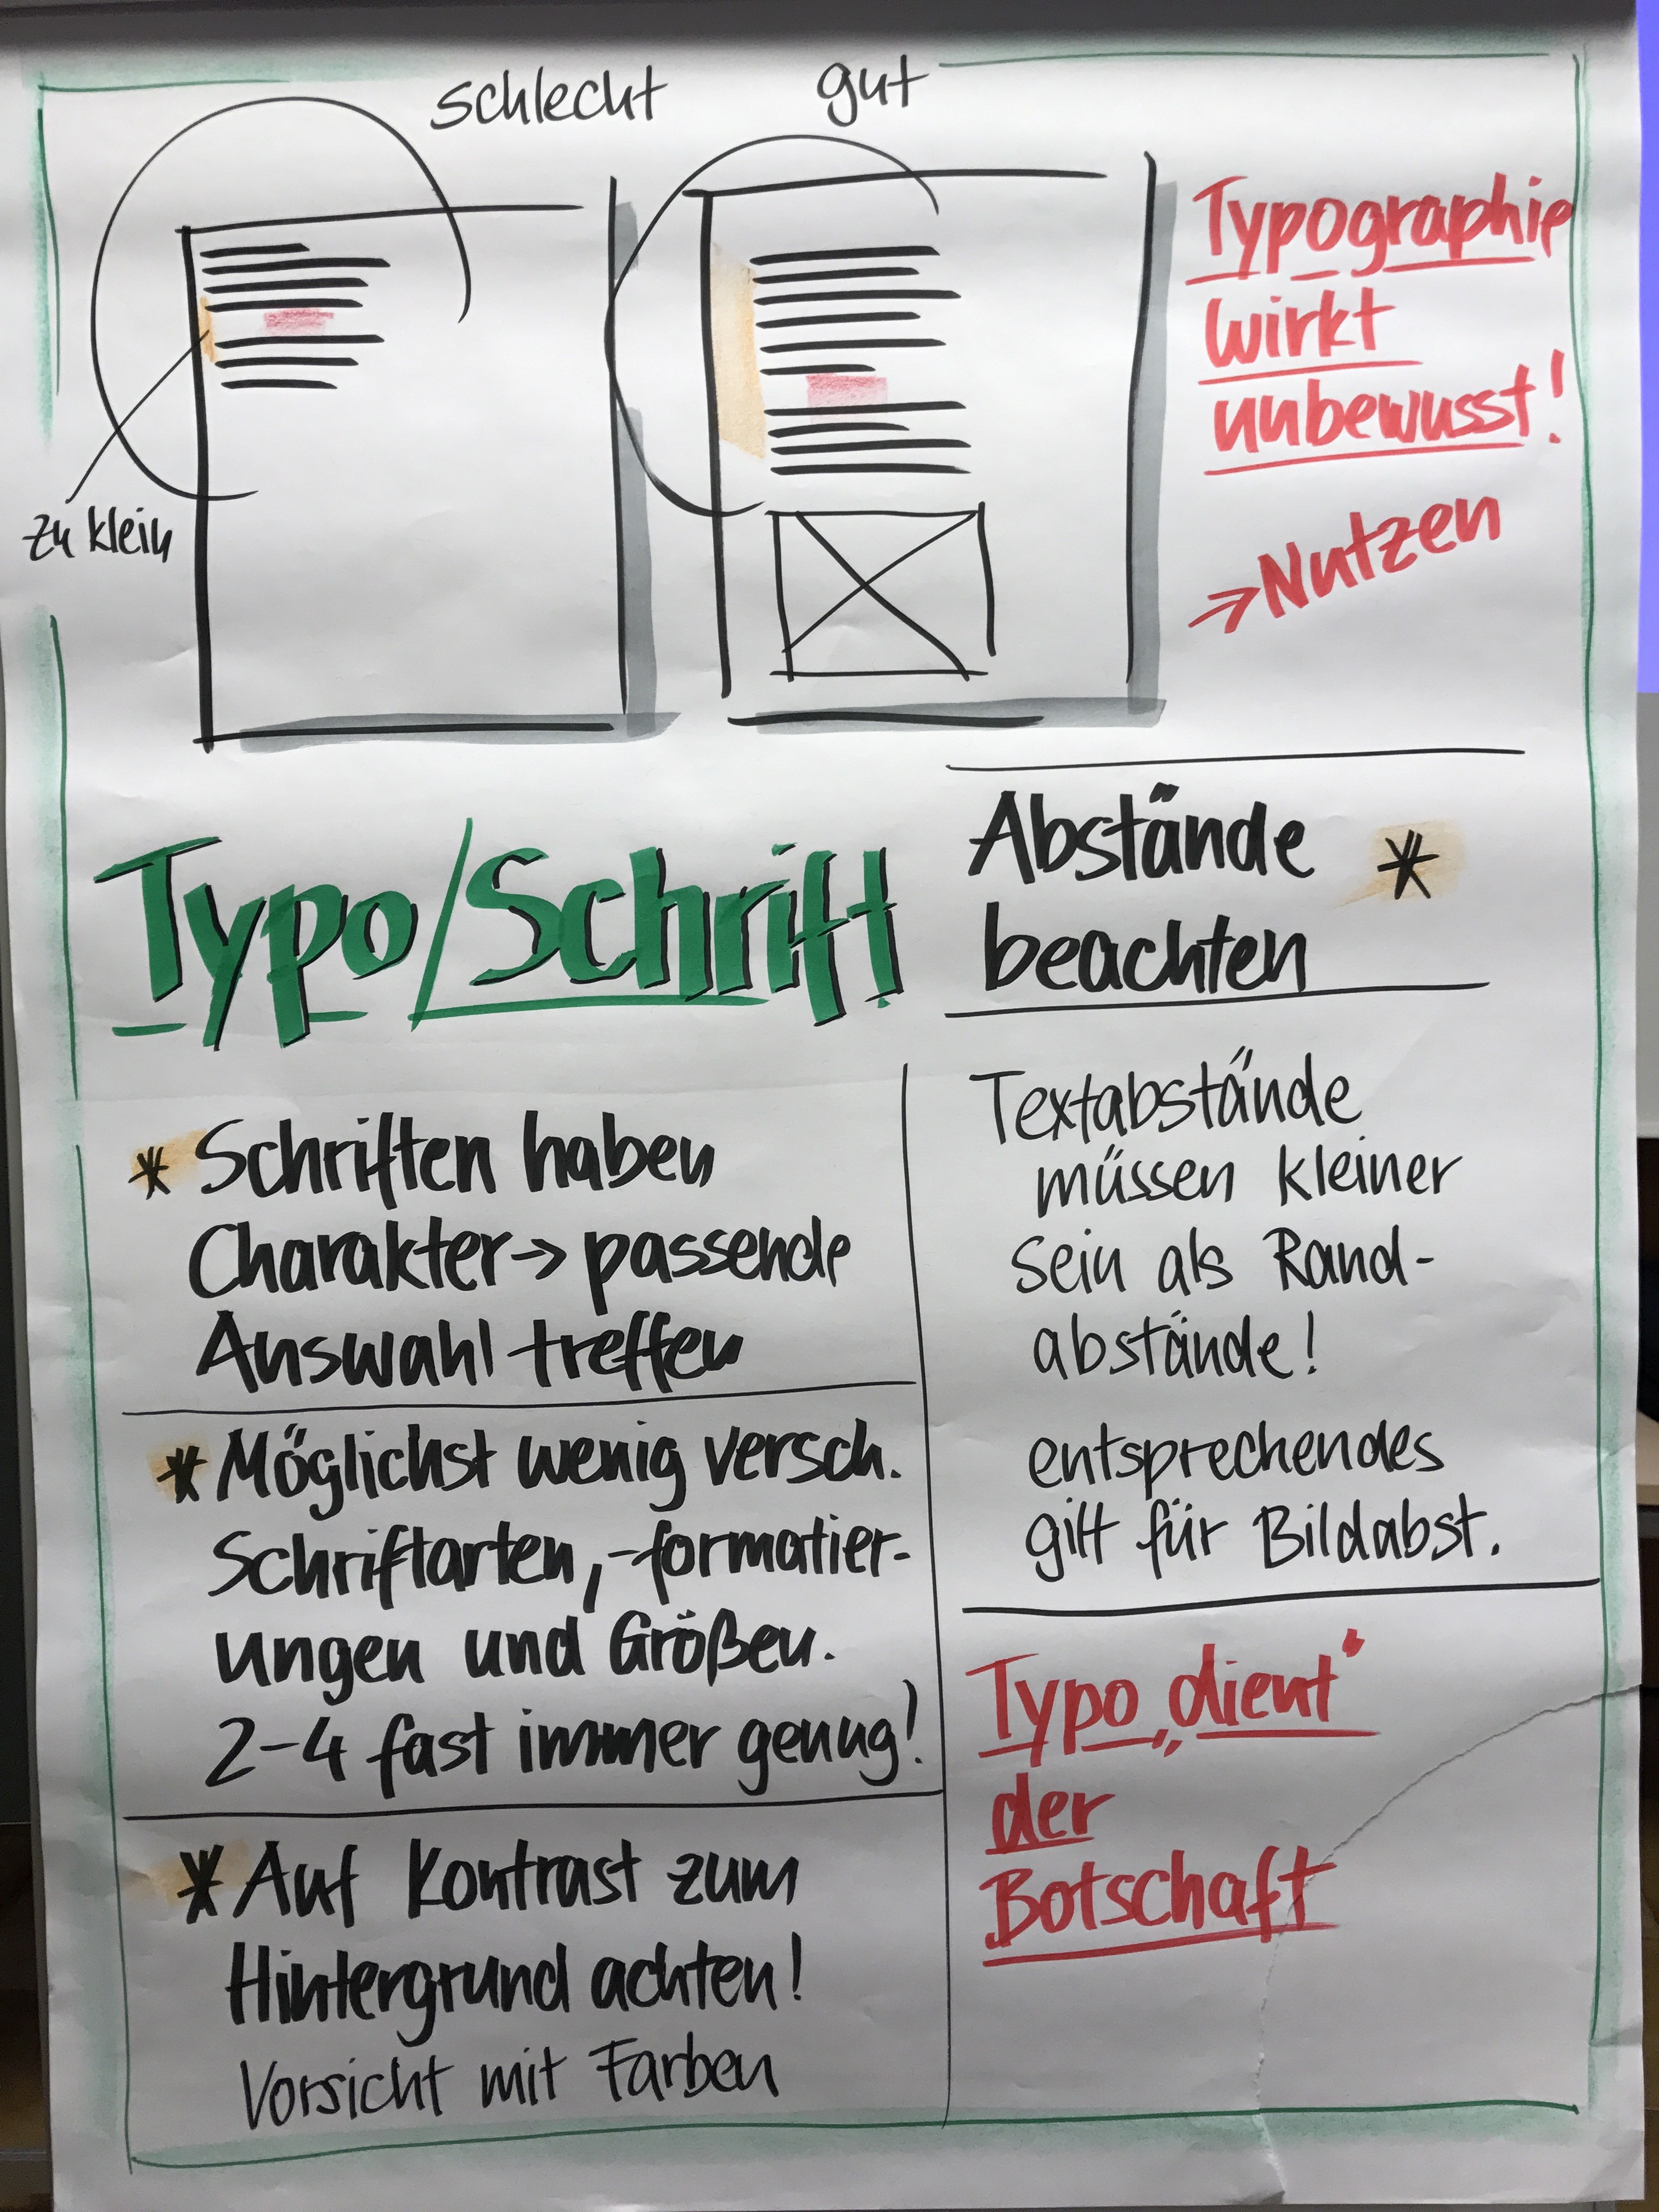 schlecht
gut
zu klein
Typographie
wirkt
unbewusst!
→ Nutzen
Typo/Schrift
* Schriften haben
Charakter → passende
Auswahl treffen
* Möglichst wenig versch.
Schriftarten, -formatier-
ungen und Größen.
2-4 fast immer genug!
* Auf Kontrast zum
Hintergrund achten!
Vorsicht mit Farben
Abstände *
beachten
Textabstände
müssen kleiner
sein als Rand-
abstände!
entsprechendes
gilt für Bildabst.
Typo „dient“
der
Botschaft